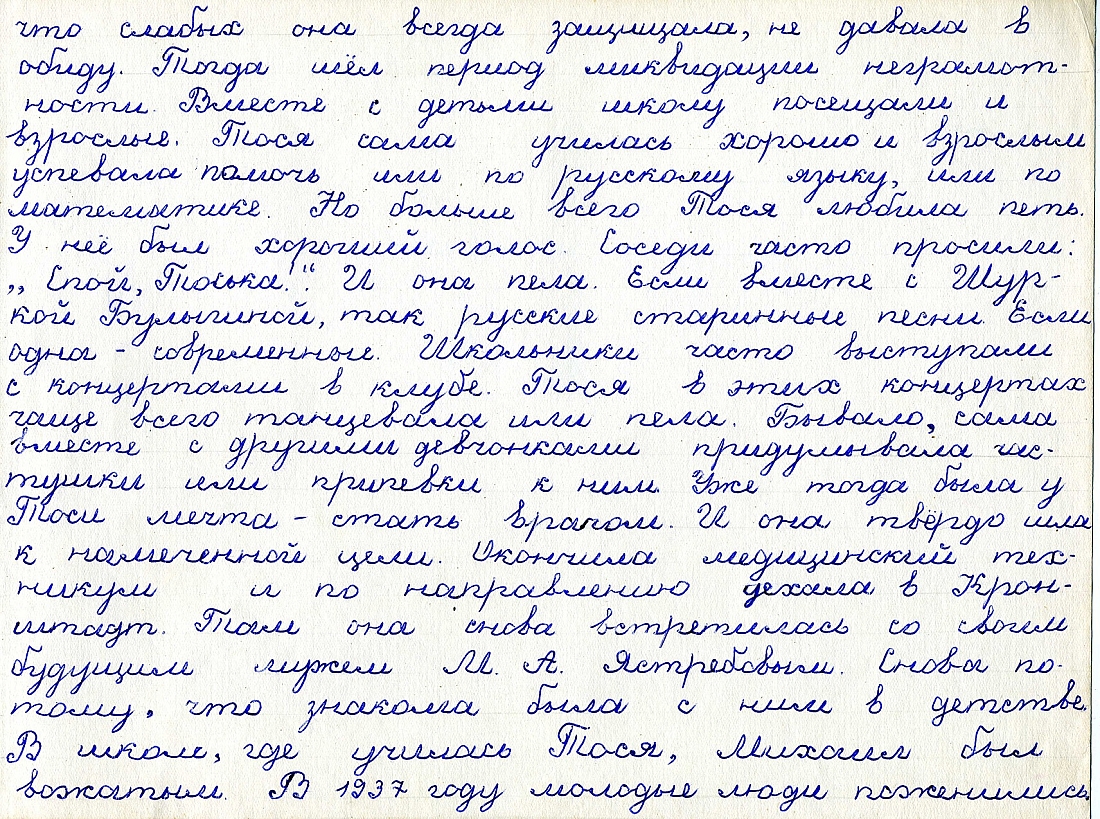 что слабых она всегда защищала, не давала в
обиду. Тогда шёл период ликвидации неграмот-
ности. Вместе с детьми школу посещали и
взрослые. Тося сама училась хорошо и взрослым
успевала помочь или по русскому языку, или по
математике. Но больше всего Тося любила петь.
У неё был хороший голос. Соседи часто просили:
„Спой, Тоська!". И она пела. Если вместе с Шур-
кой Булыгиной, так русские старинные песни. Если
одна - современные. Школьники часто выступали
с концертами в клубе. Тося в этих концертах
чаще всего танцевала или пела. Бывало, сама
вместе с другими девчонками придумывала час-
тушки или припевки к ним. Уже тогда была у
Тоси мечта - стать врачом. И она твёрдо шла
к намеченной цели. Окончила медицинский тех-
никум и по направлению уехала в Крон-
штадт. Там она снова встретилась со своим
будущим мужем М. А. Ястребовым. Снова по-
тому, что знакома была с ним в детстве.
В школе, где училась Тося, Михаил был
вожатым. В 1937 году молодые люди поженились.